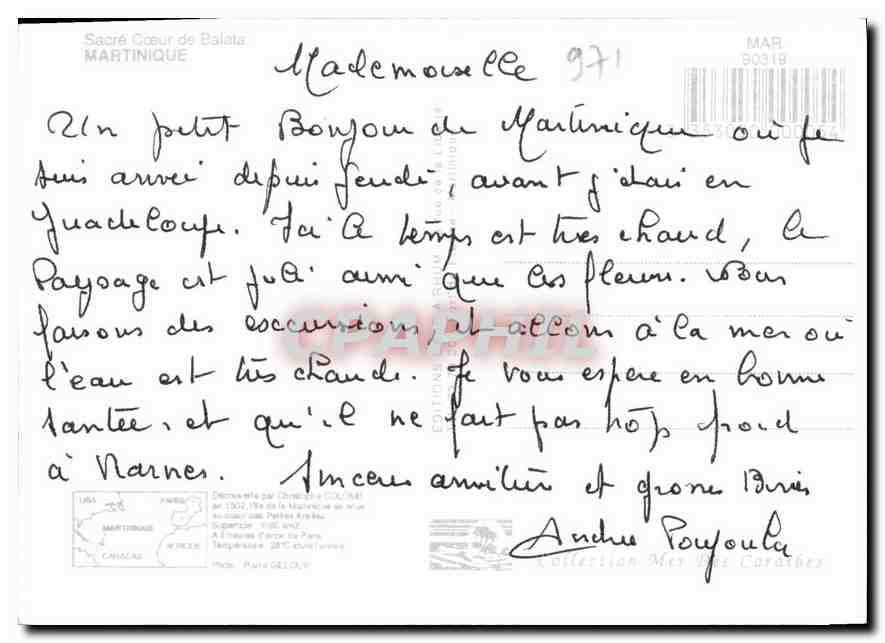 Sacré Cœur de Balata
MARTINIQUE
Mademoiselle
971
MAR
90319
Un petit Bonjour de Martinique où je
suis arrivé depuis Jeudi, avant j'étais en
Guadeloupe. Ici le temps est très chaud, le
Paysage est joli ainsi que les fleurs. Nous
faisons des excursions, et allons à la mer où
l'eau est très chaude. Je vous espère en bonne
santée, et qu'il ne fait pas trop froid
à Marnes. Sincères amitiés et grosses Bises
Andrée
CPAPHIL
USA
PARIS
MARTINIQUE
CARACAS
AFRIQUE
Découverte par Christophe COLOMB
en 1502, l'île de la Martinique se situe
au cœur des Petites Antilles
Superficie : 1100 km2
A 8 heures d'avion de Paris
Température : 26°C toute l'année
Photo : Pierre
Collection Mer Des Caraïbes
EDITIONS